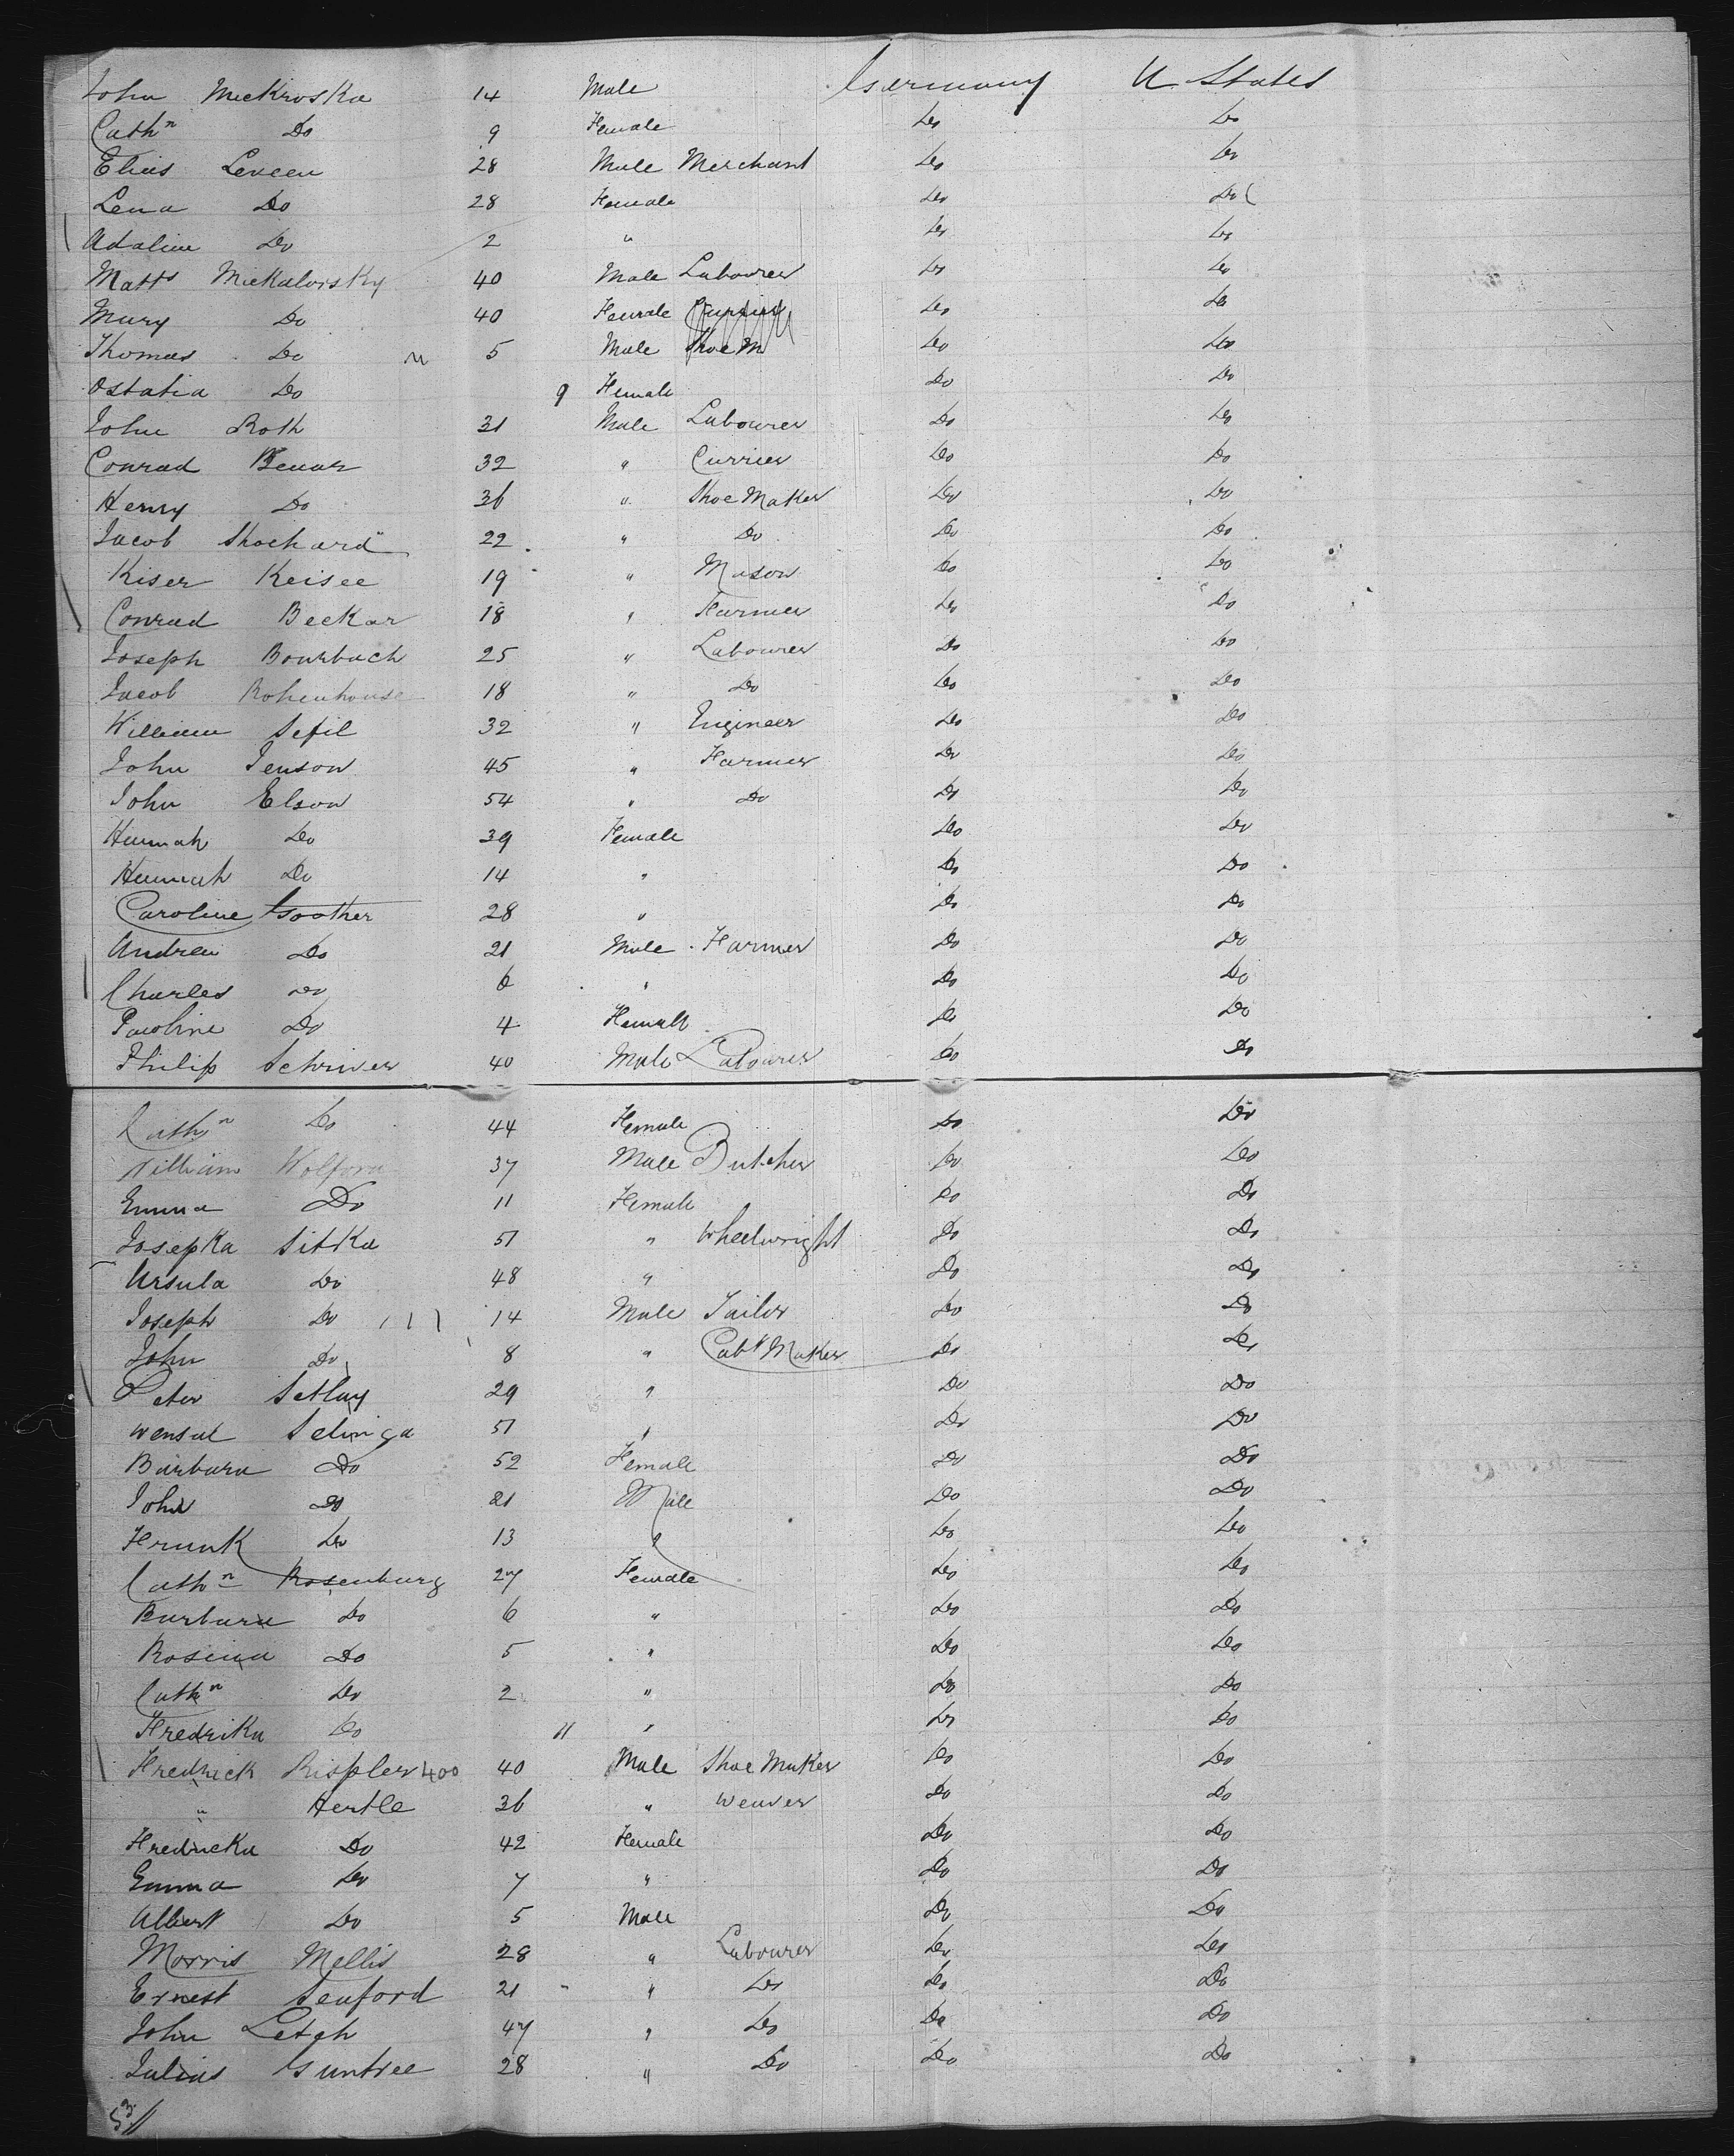 John Mickroska 14 Male Germany U. States
Cathn Do 9 Female Do Do
Elias Leveen 28 Male Merchant Do Do
Lena Do 28 Female Do Do
Adaline Do 2 " Do Do
Matts Mickalovisky 40 Male Labourer Do Do
Mary Do 40 Female Do Do
Thomas Do 5 Male Shoe M Do Do
Ostatia Do 9 Female Do Do
John Roth 31 Male Labourer Do Do
Conrad 32 " Currier Do Do
Henry Do 36 " Shoe Maker Do Do
Jacob Shochard 22 " Do Do Do
Kiser Keisee 19 " Mason Do Do
Conrad Beckar 18 " Farmer Do Do
Joseph Bourbach 25 " Labourer Do Do
Jacob Rohenhouse 18 " Do Do Do
William Sefil 32 " Engineer Do Do
John Jenson 45 " Farmer Do Do
John Elson 54 " Do Do Do
Hannah Do 39 Female Do Do
Hannah Do 14 " Do Do
Caroline Goother 28 " Do Do
Andrew Do 21 Male Farmer Do Do
Charles Do 6 " Do Do
Pauline Do 4 Female Do Do
Philip Schriver 40 Male Labourer Do Do
Cathn Do 44 Female Do Do
William Wolforn 37 Male Butcher Do Do
Emma Do 11 Female Do Do
Josepka Sitka 51 " Wheelwright Do Do
Ursula Do 48 " Do Do
Joseph Do 14 Male Tailor Do Do
John Do 8 " Cabt Maker Do Do
Peter Setlay 29 " Do Do
Wensul Selinga 51 " Do Do
Barbara Do 52 Female Do Do
John Do 21 Male Do Do
Frank Do 13 " Do Do
Cathn Rosenburg 27 Female Do Do
Barbara Do 6 " Do Do
Rosina Do 5 " Do Do
Cathn Do 2 " Do Do
Fredrika Do 11 " Do Do
Fredrick Rispler 400 40 Male Shoe Maker Do Do
" Hertle 36 " Weaver Do Do
Fredricka Do 42 Female Do Do
Emma Do 7 " Do Do
Albert Do 5 Male Do Do
Morris Mellis 28 " Labourer Do Do
Ernest Senford 21 " Do Do Do
John Letch 47 " Do Do Do
Julius Guntree 28 " Do Do Do